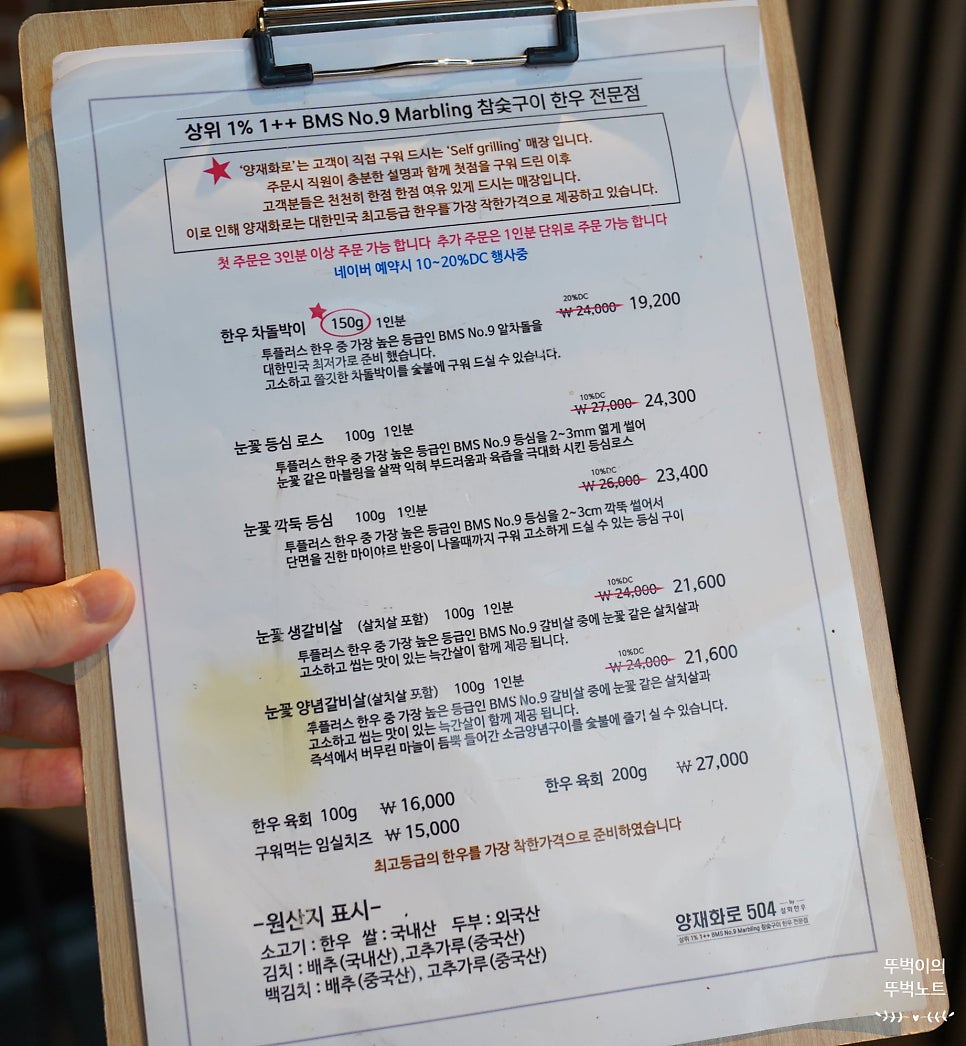 상위 1% 1++ BMS No.9 Marbling 참숯구이 한우 전문점
'양재화로'는 고객이 직접 구워 드시는 'Self grilling' 매장 입니다.
주문시 직원이 충분한 설명과 함께 첫점을 구워 드린 이후
고객분들은 천천히 한점 한점 여유 있게 드시는 매장입니다.
이로 인해 양재화로는 대한민국 최고등급 한우를 가장 착한가격으로 제공하고 있습니다.
첫 주문은 3인분 이상 주문 가능 합니다 추가 주문은 1인분 단위로 주문 가능합니다
네이버 예약시 10~20%DC 행사중
20%DC
한우 차돌박이 150g 1인분 ₩ 24,000 19,200
투플러스 한우 중 가장 높은 등급인 BMS No.9 알차돌을
대한민국 최저가로 준비 했습니다.
고소하고 쫄깃한 차돌박이를 숯불에 구워 드실 수 있습니다.
10%DC
눈꽃 등심 로스 100g 1인분 ₩ 27,000 24,300
투플러스 한우 중 가장 높은 등급인 BMS No.9 등심을 2~3mm 엷게 썰어
눈꽃 같은 마블링을 살짝 익혀 부드러움과 육즙을 극대화 시킨 등심로스
10%DC
눈꽃 깍둑 등심 100g 1인분 ₩ 26,000 23,400
투플러스 한우 중 가장 높은 등급인 BMS No.9 등심을 2~3cm 깍뚝 썰어서
단면을 진한 마이야르 반응이 나올때까지 구워 고소하게 드실 수 있는 등심 구이
10%DC
눈꽃 생갈비살 (살치살 포함) 100g 1인분 ₩ 24,000 21,600
투플러스 한우 중 가장 높은 등급인 BMS No.9 갈비살 중에 눈꽃 같은 살치살과
고소하고 씹는 맛이 있는 늑간살이 함께 제공 됩니다.
10%DC
눈꽃 양념갈비살(살치살 포함) 100g 1인분 ₩ 24,000 21,600
투플러스 한우 중 가장 높은 등급인 BMS No.9 갈비살 중에 눈꽃 같은 살치살과
고소하고 씹는 맛이 있는 늑간살이 함께 제공 됩니다.
즉석에서 버무린 마늘이 듬뿍 들어간 소금양념구이를 숯불에 즐기 실 수 있습니다.
한우 육회 100g ₩ 16,000 한우 육회 200g ₩ 27,000
구워먹는 임실치즈 ₩ 15,000
최고등급의 한우를 가장 착한가격으로 준비하였습니다
-원산지 표시-
소고기 : 한우 쌀 : 국내산 두부 : 외국산
김치 : 배추(국내산),고추가루(중국산)
백김치 : 배추(중국산), 고추가루(중국산)
양재화로 504 by 설화한우
상위 1% 1++ BMS No.9 Marbling 참숯구이 한우 전문점
뚜벅이의
뚜벅노트